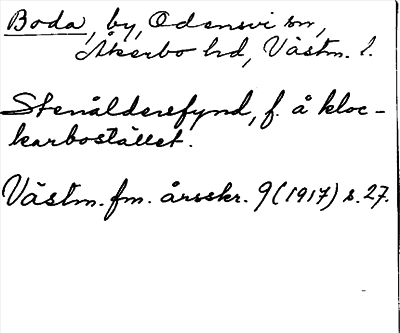 Boda, by, Odensvi sn,
Åkerbo hd, Västm. l.
Stenåldersfynd, f. å kloc-
karbostället.
Västm. fm. årsskr. 9 (1917) s. 27.